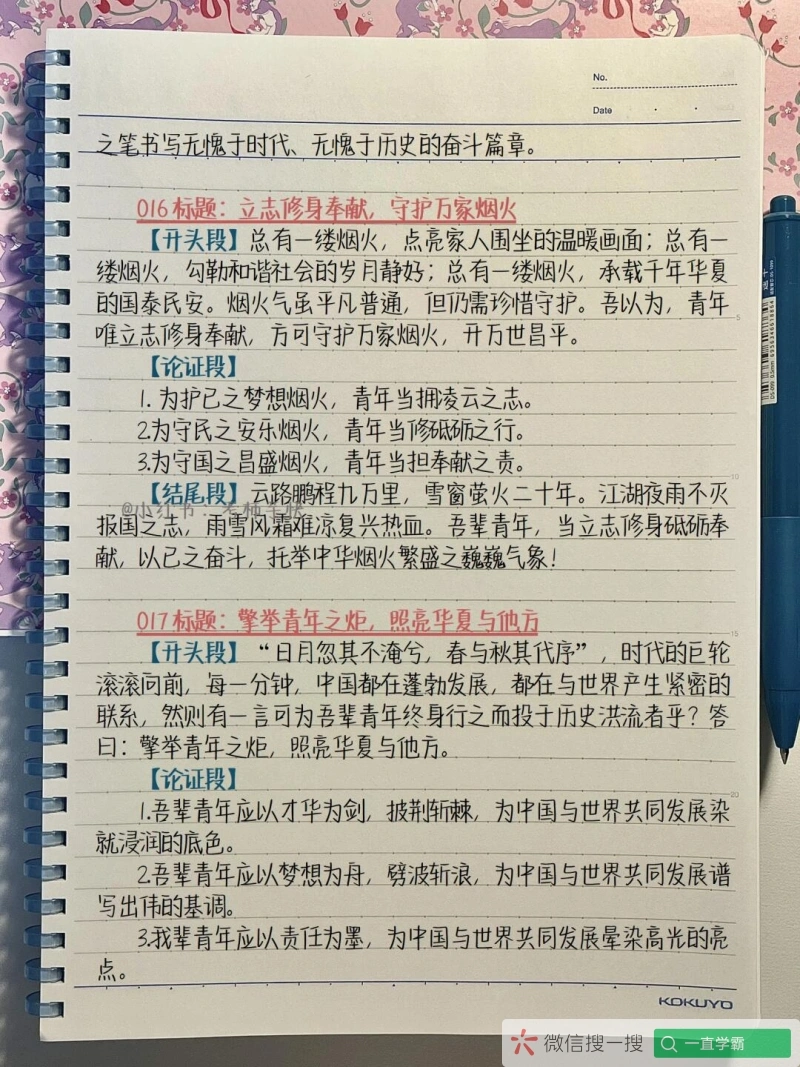 No.
Date
之笔书写无愧于时代、无愧于历史的奋斗篇章。
016标题：立志修身奉献，守护万家烟火
【开头段】总有一缕烟火，点亮家人围坐的温暖画面；总有一
缕烟火，勾勒和谐社会的岁月静好；总有一缕烟火，承载千年华夏
的国泰民安。烟火气虽平凡普通，但仍需珍惜守护。吾以为，青年
唯立志修身奉献，方可守护万家烟火，开万世昌平。
【论证段】
1.为护已之梦想烟火，青年当拥凌云之志。
2.为守民之安乐烟火，青年当修砥砺之行。
3.为守国之昌盛烟火，青年当担奉献之责。
【结尾段】云路鹏程九万里，雪窗萤火二十年。江湖夜雨不灭
报国之志，雨雪风霜难凉复兴热血。吾辈青年，当立志修身砥砺奉
献，以已之奋斗，托举中华烟火繁盛之巍巍气象！
017标题：擎举青年之炬，照亮华夏与他方
【开头段】“日月忽其不淹兮，春与秋其代序”，时代的巨轮
滚滚向前，每一分钟，中国都在蓬勃发展，都在与世界产生紧密的
联系，然则有一言可为吾辈青年终身行之而投于历史洪流者乎？答
曰：擎举青年之炬，照亮华夏与他方。
【论证段】
1.吾辈青年应以才华为剑，披荆斩棘，为中国与世界共同发展染
就浸润的底色。
2.吾辈青年应以梦想为舟，劈波斩浪，为中国与世界共同发展谱
写出伟的基调。
3.我辈青年应以责任为墨，为中国与世界共同发展晕染高光的亮
点。
KOKUYO
微信搜一搜
一直学霸